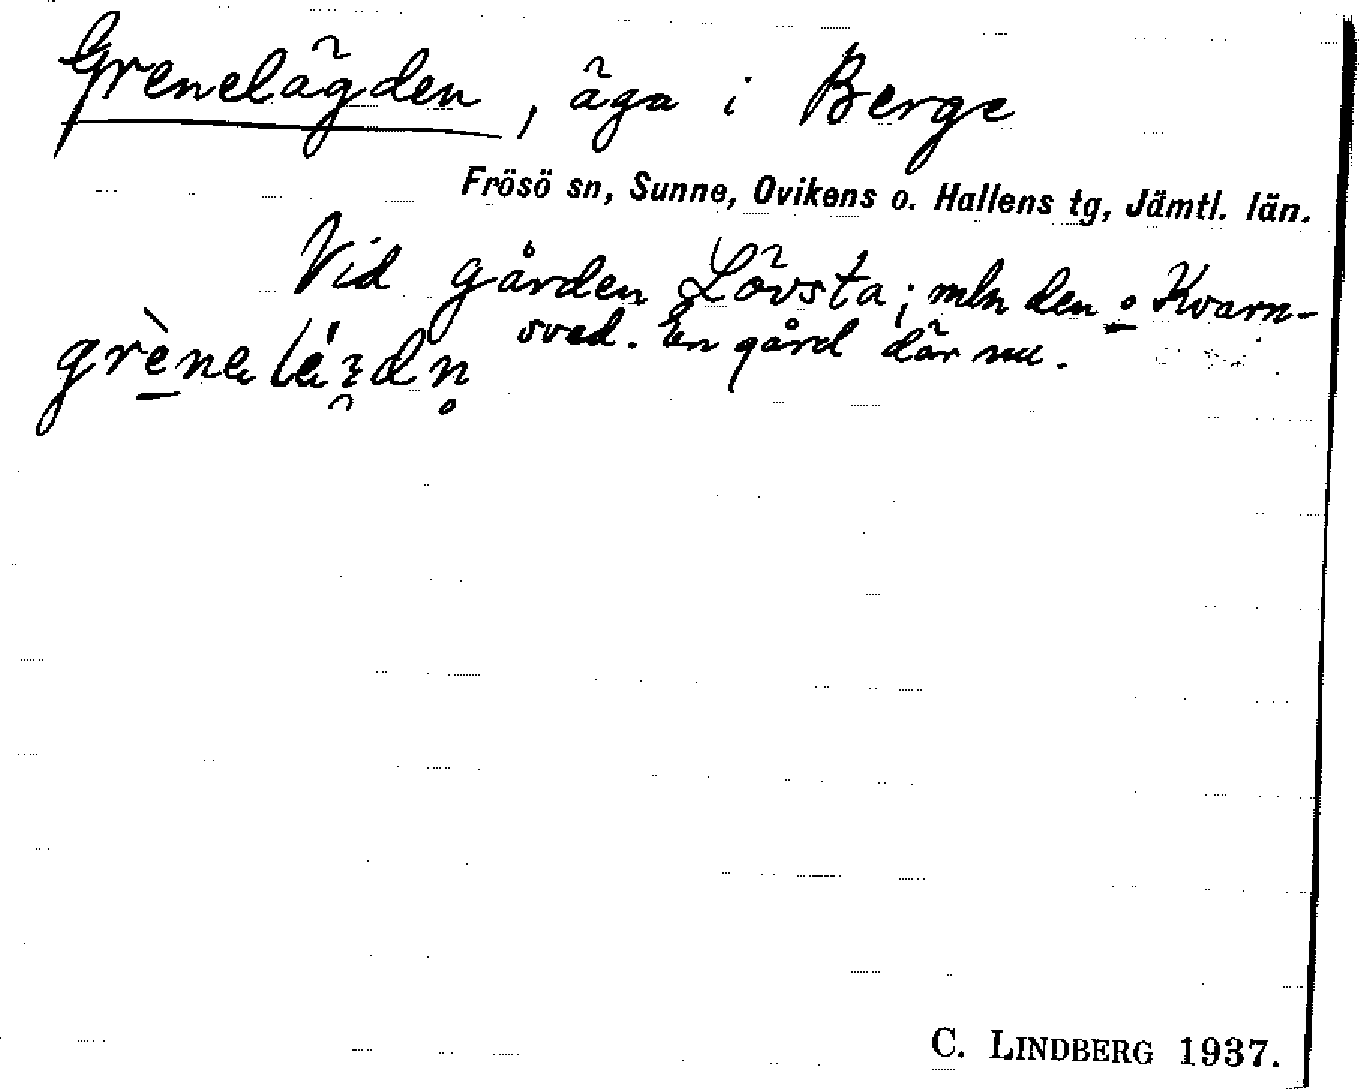 Grenelägden, äga i Berge
Frösö sn, Sunne, Ovikens o. Hallens tg, Jämtl. län.
Vid gården Lövsta; mln den o Kvarn-
sved. En gård där nu.
C. LINDBERG 1937.